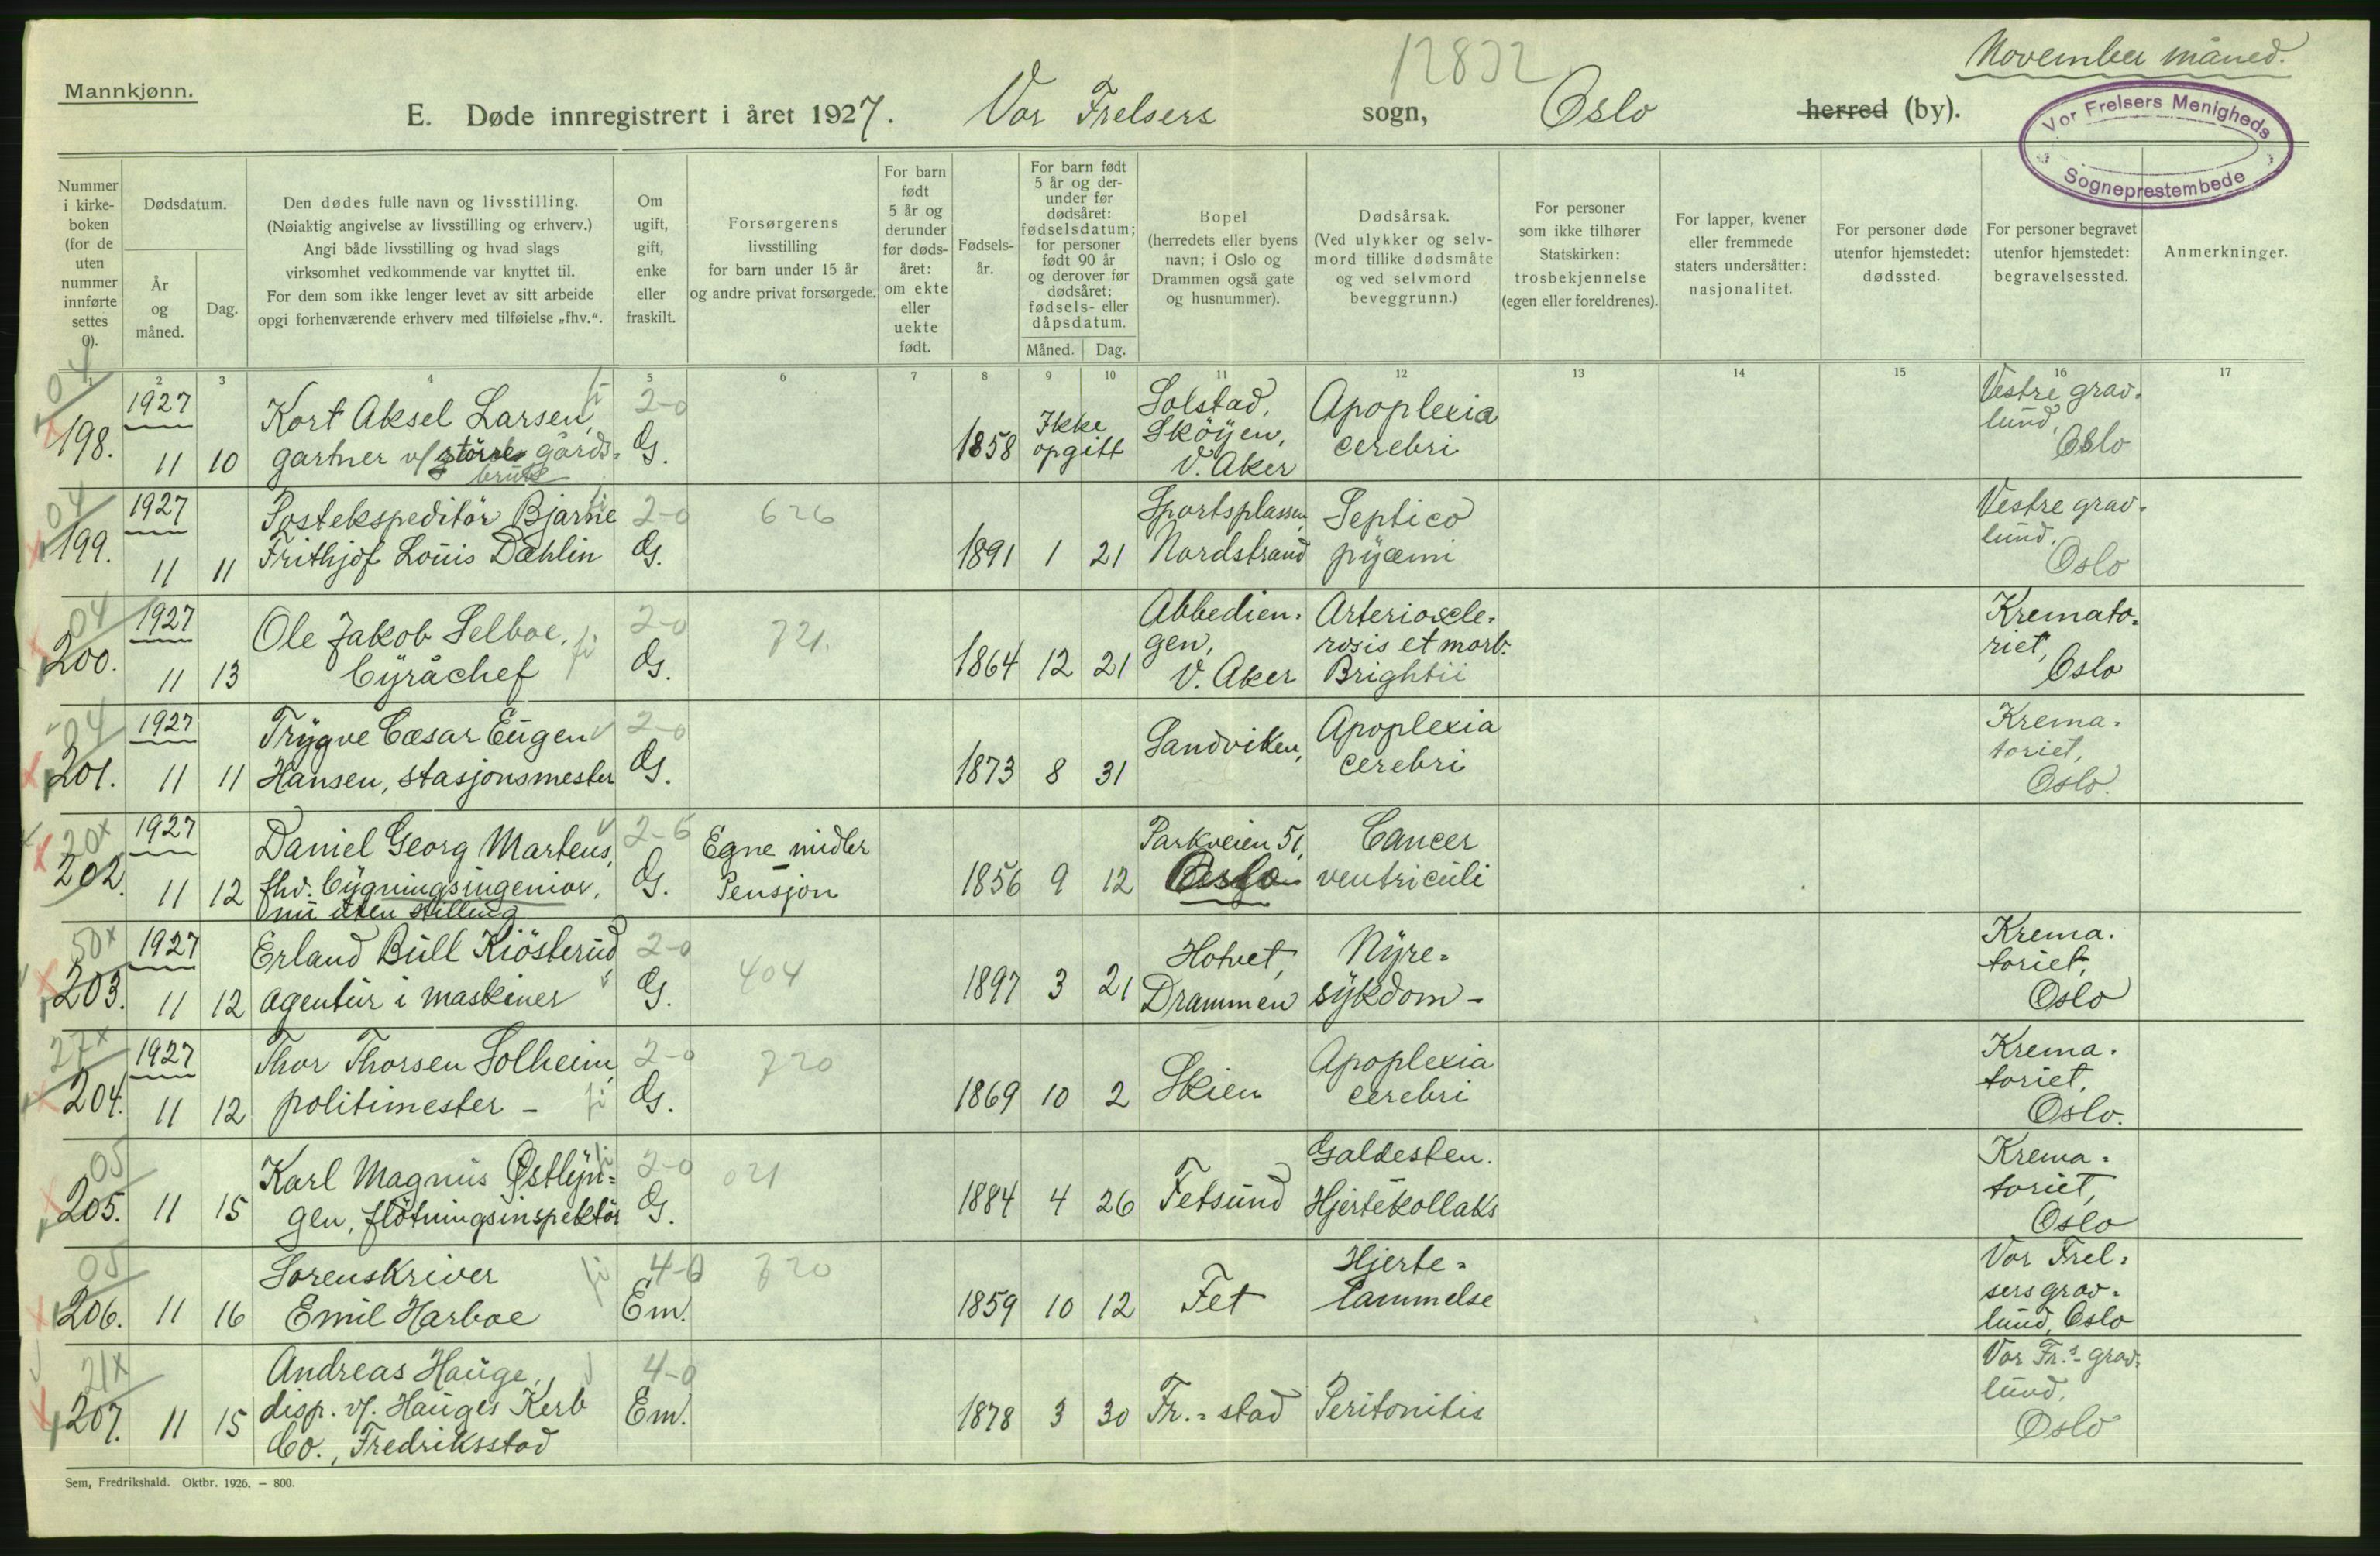 November måned.
12832
Mannkjønn.
E. Døde innregistrert i året 1927. Vor Frelsers sogn, Oslo herred (by).
Vor Frelsers Menigheds
Sogneprestembede
Nummer i kirke-boken (for de uten nummer innførte settes 0).
Dødsdatum.
År og måned.
Dag.
Den dødes fulle navn og livsstilling.
(Nøiaktig angivelse av livsstilling og erhverv.)
Angi både livsstilling og hvad slags
virksomhet vedkommende var knyttet til.
For dem som ikke lenger levet av sitt arbeide
opgi forhenværende erhverv med tilføielse „fhv.“.
Om ugift, gift, enke eller fraskilt.
Forsørgerens
livsstilling
for barn under 15 år
og andre privat forsørgede.
For barn født 5 år og derunder før døds-året: om ekte eller uekte født.
Fødsels-år.
For barn født 5 år og der-under før dødsåret: fødselsdatum; for personer født 90 år og derover før dødsåret: fødsels- eller dåpsdatum.
Måned. Dag.
Bopel
(herredets eller byens
navn; i Oslo og
Drammen også gate
og husnummer).
Dødsårsak.
(Ved ulykker og selv-
mord tillike dødsmåte
og ved selvmord
beveggrunn.)
For personer
som ikke tilhører
Statskirken:
trosbekjennelse
(egen eller foreldrenes).
For lapper, kvener
eller fremmede
staters undersåtter:
nasjonalitet.
For personer døde
utenfor hjemstedet:
dødssted.
For personer begravet
utenfor hjemstedet:
begravelsessted.
Anmerkninger.
1 2 3 4 5 6 7 8 9 10 11 12 13 14 15 16 17
04
198. 1927 11 10
Kort Aksel Larsen,
gartner v/ större gårds-
bruk
2-0
G.
1858 Ikke opgitt
Solstad,
Sköyen,
V. Aker
Apoplexia
cerebri
Vestre grav-
lund,
Oslo
04
199. 1927 11 11
Postekspeditör Bjarne
Frithjof Louis Dæhlin
2-0
G.
626
1891 1 21
Sportsplassen,
Nordstrand
Septico
pyæmi
Vestre grav-
lund,
Oslo
04
200. 1927 11 13
Ole Jakob Selboe,
byråchef
2-0
G.
721.
1864 12 21
Abbedien-
gen,
V. Aker
Arterioscle-
rosis et morb.
Brightii
Kremato-
riet,
Oslo
04
201. 1927 11 11
Trygve Cæsar Eugen
Hansen, stasjonsmester
2-0
G.
1873 8 31
Sandviken,
Apoplexia
cerebri
Krema-
toriet,
Oslo.
20x
202. 1927 11 12
Daniel Georg Martens,
fhv. bygningsingeniør,
nu uten stilling
2-6
G.
Egne midler
Pensjon
1856 9 12
Parkveien 51,
Oslo
Cancer
ventriculi
50x
203. 1927 11 12
Erland Bull Kiösterud
agentur i maskiner
2-0
G.
404
1897 3 21
Hotvet,
Drammen
Nyre-
sykdom -
Krema-
toriet,
Oslo
27x
204. 1927 11 12
Thor Thorsen Solheim,
politimester -
2-0
G.
720
1869 10 2
Skien
Apoplexia
cerebri
Krema-
toriet,
Oslo.
05
205. 11 15
Karl Magnus Østlyn-
gen, flötningsinspektör
2-0
G.
021
1884 4 26
Fetsund
Galdesten.
Hjertekollaks
Krema-
toriet,
Oslo
05
206. 11 16
Sorenskriver
Emil Harboe
4-0
Em.
720
1859 10 12
Fet
Hjerte-
lammelse
Vor Frel-
sers grav-
lund, Oslo
21x
207. 11 15
Andreas Hauge,
disp. v/. Hauges Kerb
Co., Fredriksstad
4-0
Em.
1878 3 30
Fr.-stad
Peritonitis
Vor Fr.s- grav-
lund,
Oslo
Sem, Fredrikshald. Oktbr. 1926. – 800.